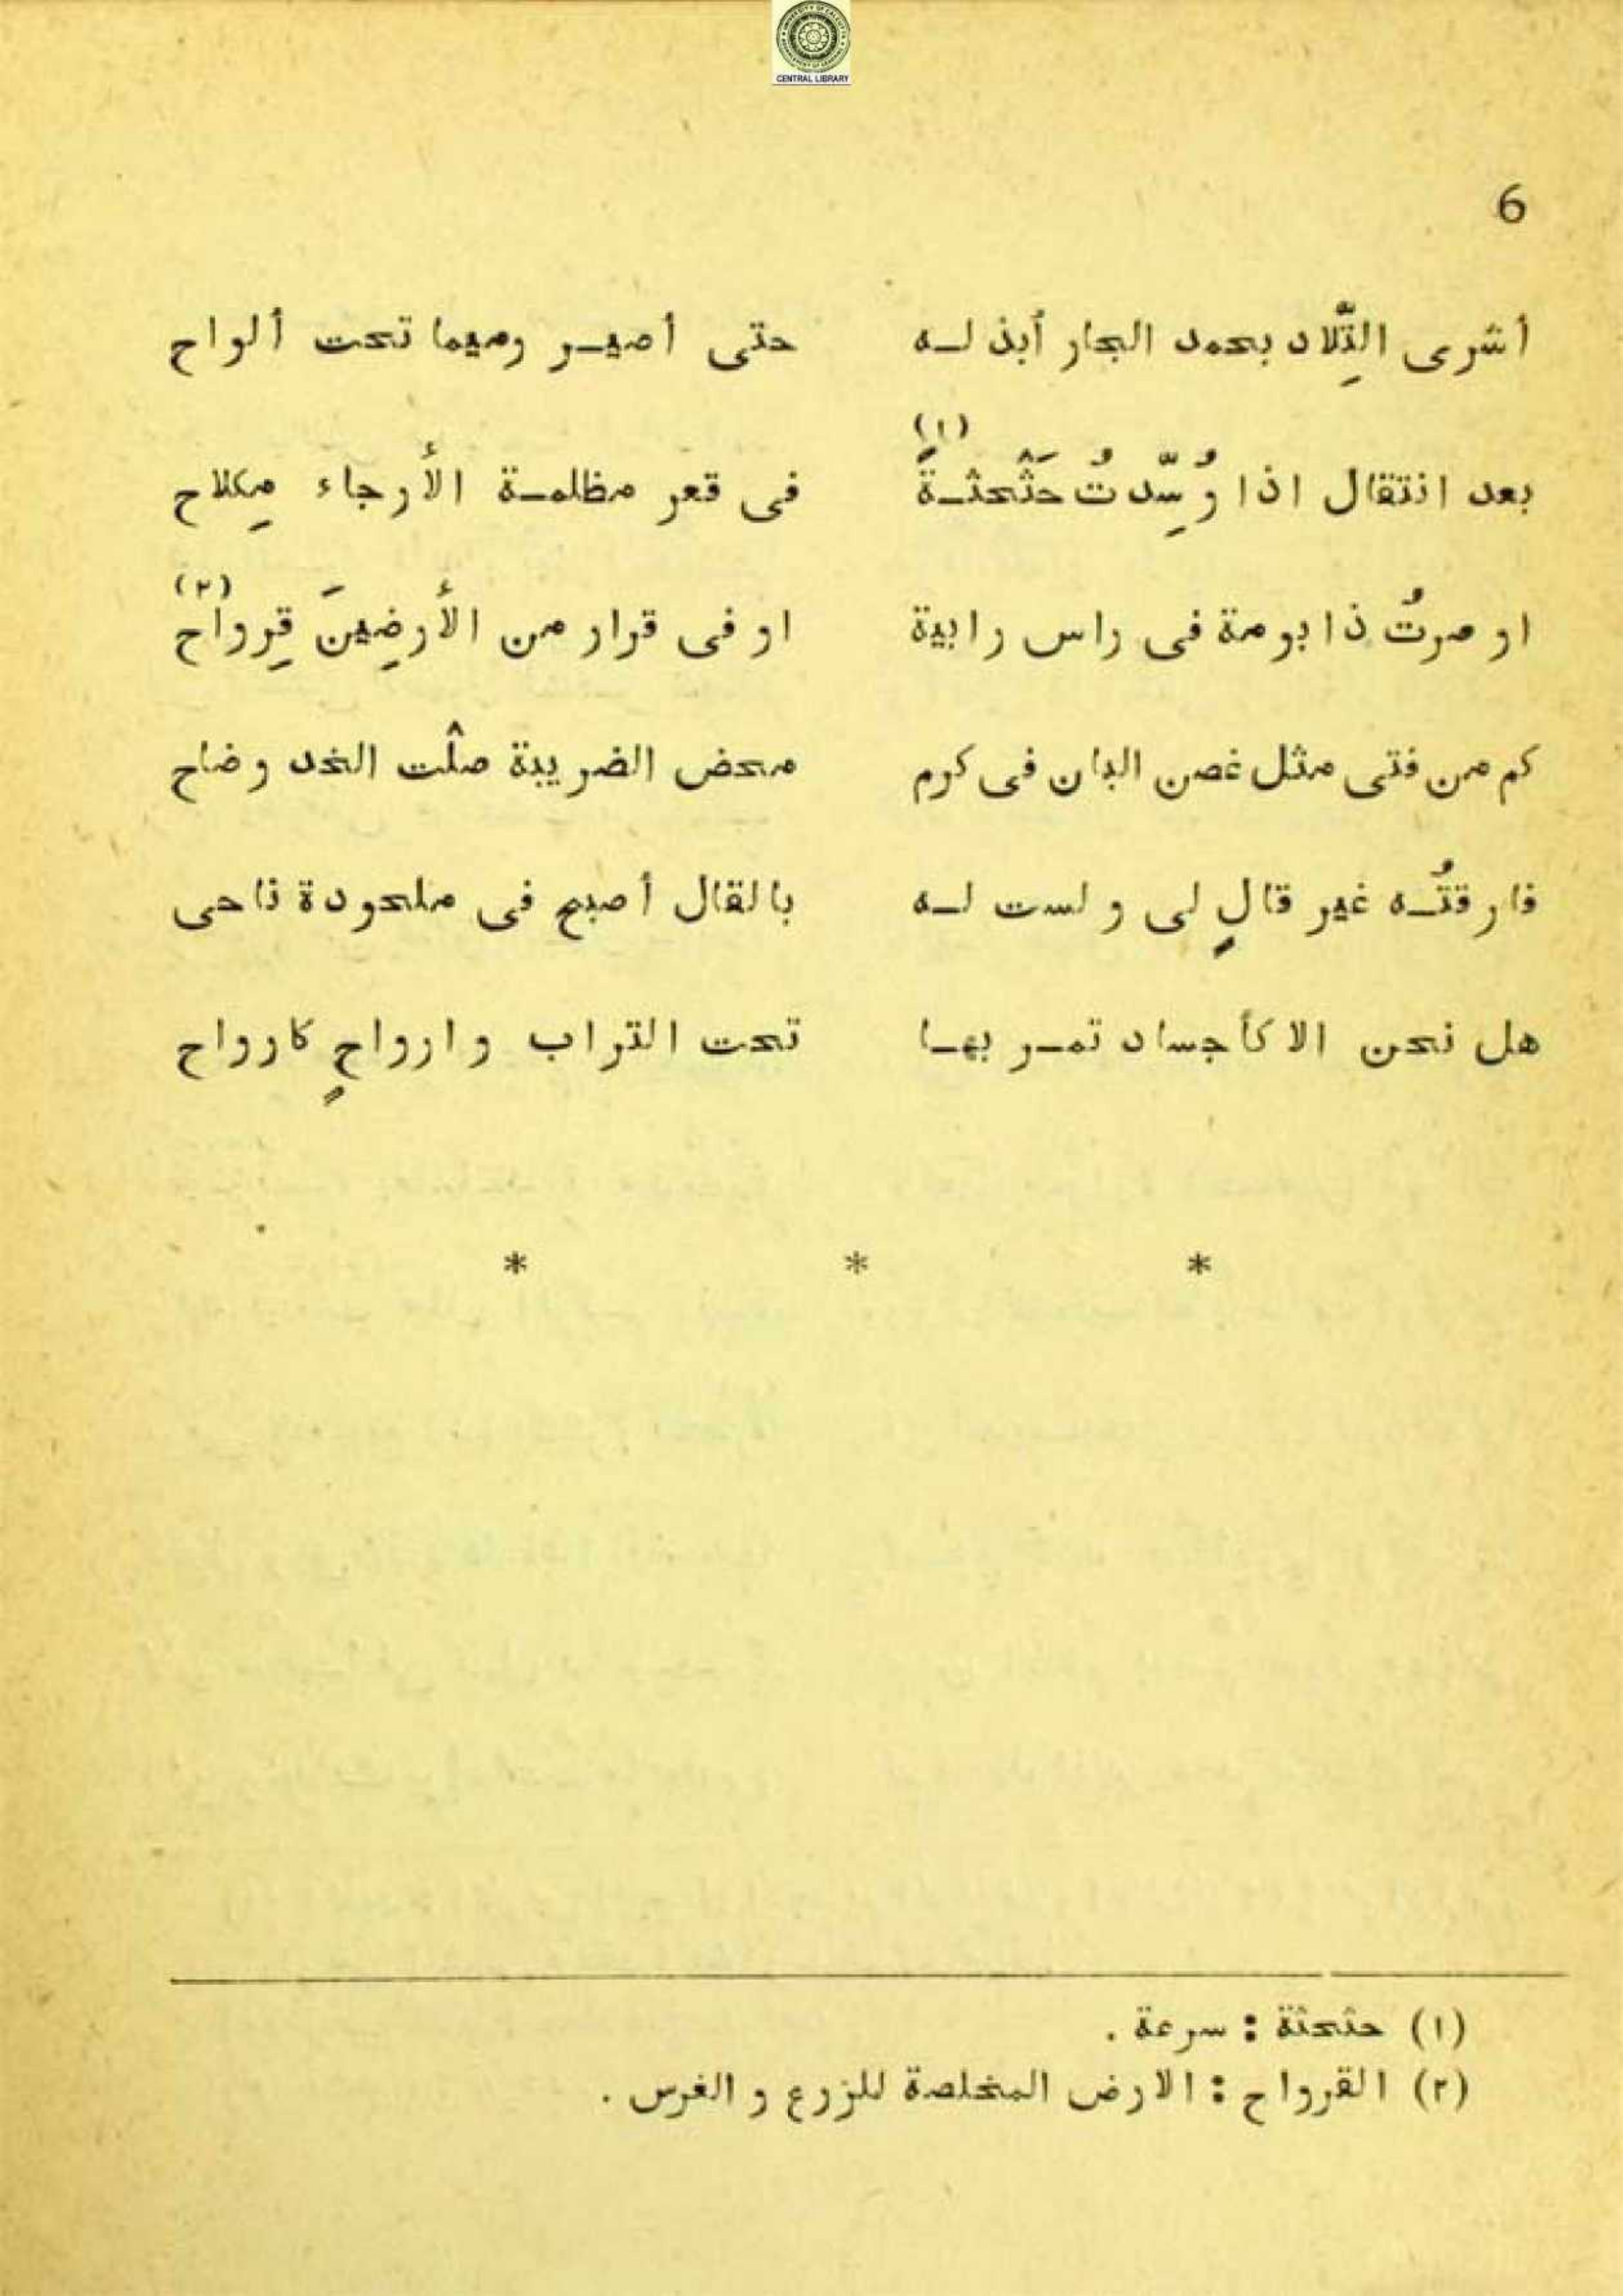 UNIVERSITY OF CALCUTTA
CENTRAL LIBRARY
6
أشرى التِّلاد بحمد الجار أبذلـه حتى أصيـر رميما تحت ألواح
(١)
بعد انتقال اذا وُسِّدتُ حَثْحثـةً فى قعر مظلمـة الأرجاء مِكلاح
(٢)
او صرتُ ذا بومة فى راس رابية او فى قرار من الأرضِينَ قِرواح
كم من فتى مثل غصن البان فى كرم محض الضريبة صلْت الخد وضاح
فارقتُـه غير قالٍ لى و لست لـه بالقال أصبح فى ملحودة ناحى
هل نحن الا كأجساد تمـر بهـا تحت التراب و ارواحٍ كارواح
* * *
(١) حثحثة : سرعة .
(٢) القرواح : الارض المخلصة للزرع و الغرس .